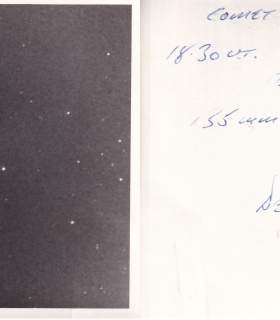 COMET
18.30 U.T.
135 mm